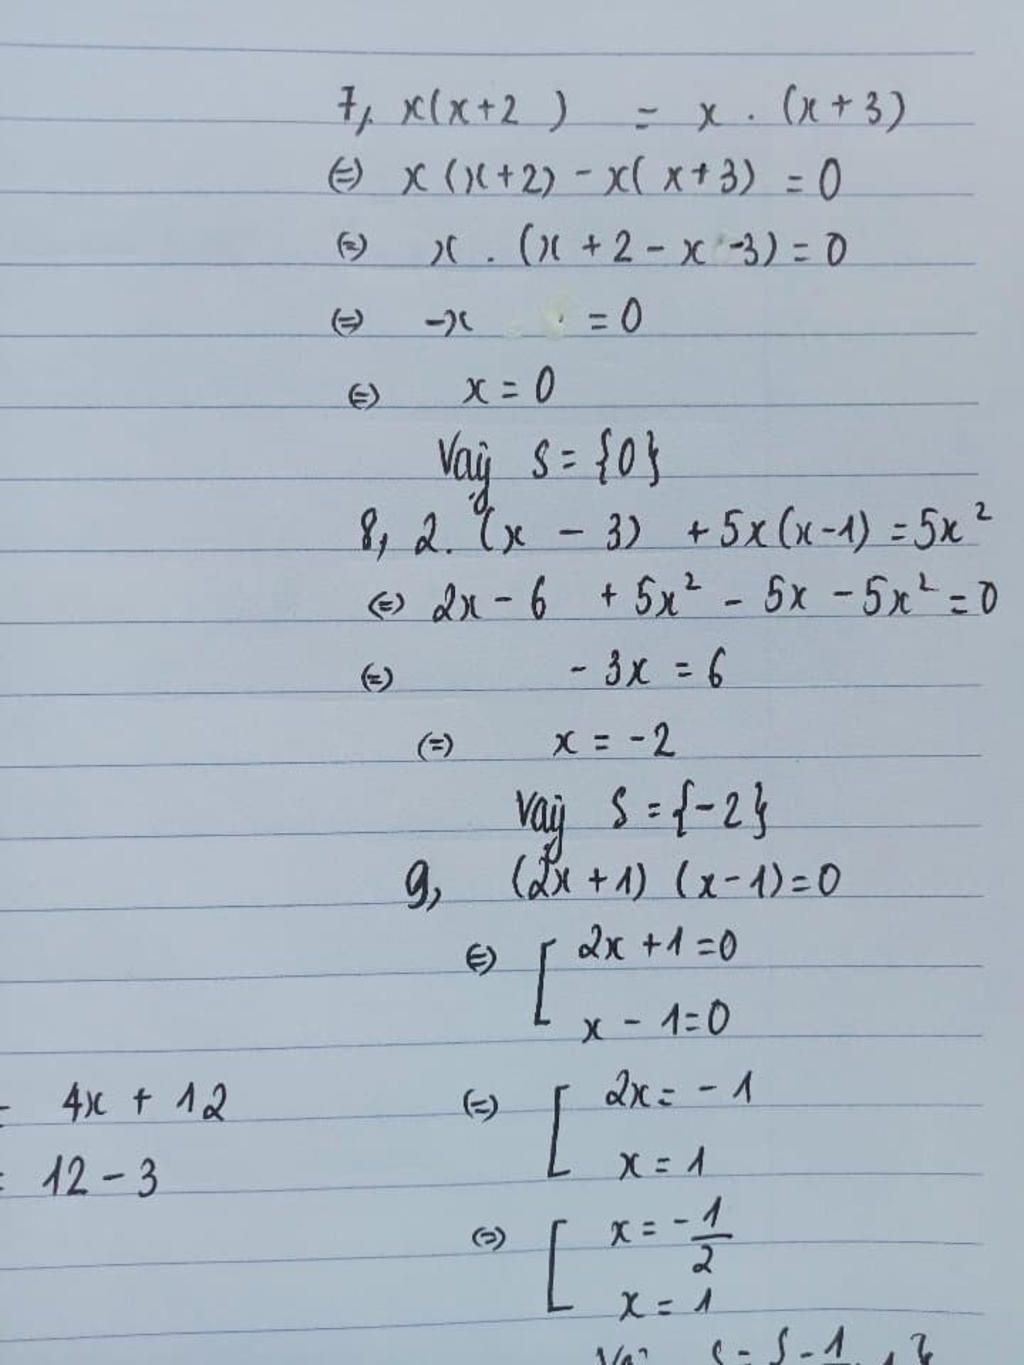 7, x(x+2) = x . (x+3)
(=) x(x+2) - x(x+3) = 0
(=) x . (x + 2 - x -3) = 0
(=) -x = 0
(=) x = 0
Vậy S = {0}
8, 2. (x - 3) + 5x(x-1) = 5x²
(=) 2x - 6 + 5x² - 5x - 5x² = 0
(=) - 3x = 6
(=) x = -2
Vậy S = {-2}
9, (2x + 1) (x - 1) = 0
(=) [ 2x + 1 = 0
x - 1 = 0
4x + 12
(=) [ 2x = - 1
12 - 3
x = 1
(=) [ x = - 1/2
x = 1